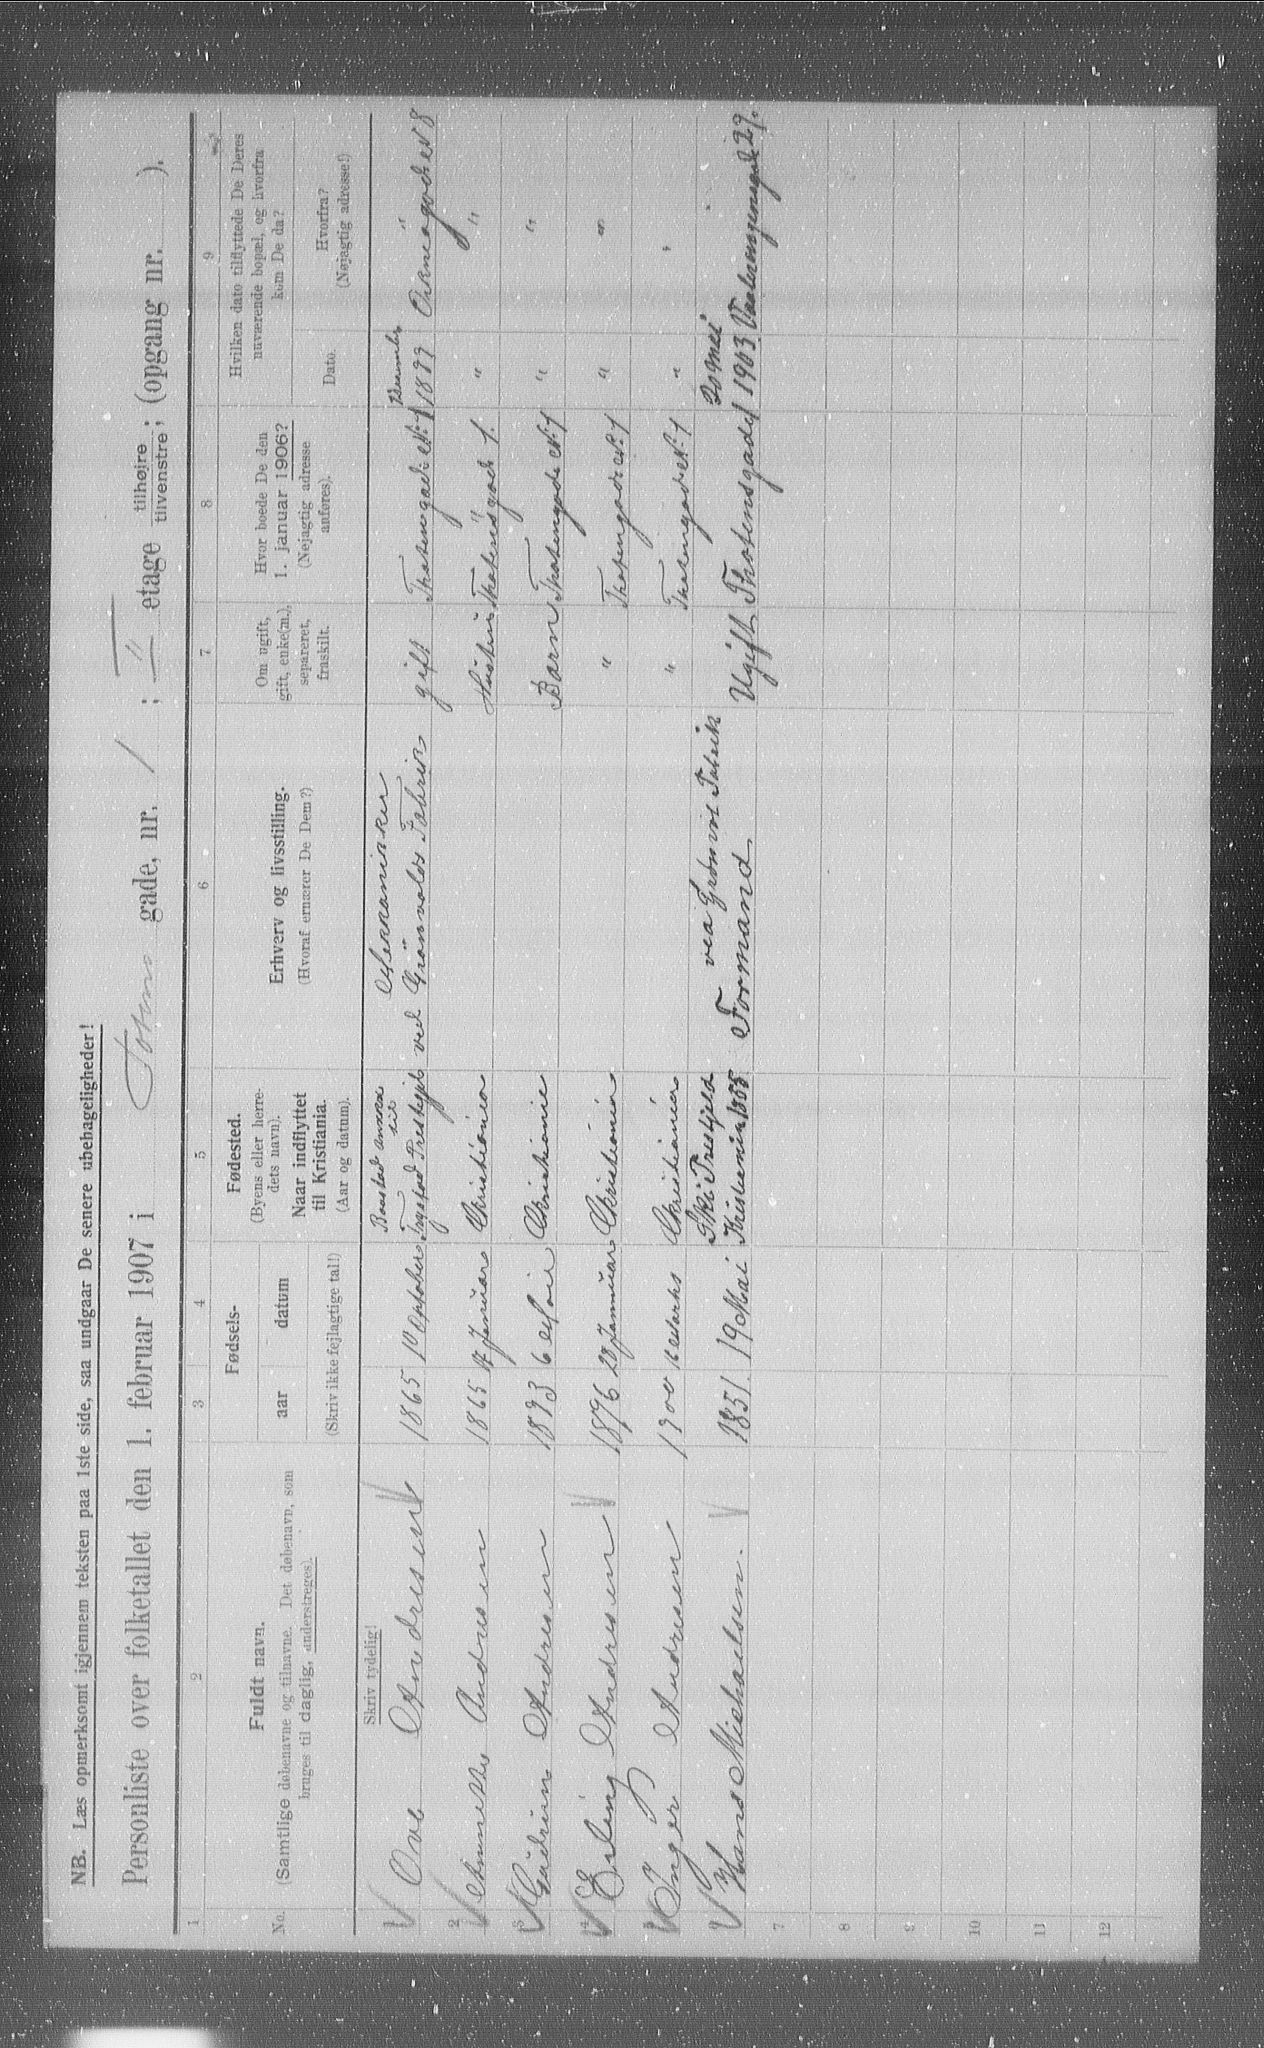 NB. Læs opmerksomt igjennem teksten paa 1ste side, saa undgaar De senere ubehageligheder!
Personliste over folketallet den 1. februar 1907 i Totens gade, nr. 1 ; II etage tilhøire tilvenstre; (opgang nr. ).
1 2 3 4 5 6 7 8 9
No.
Fuldt navn.
(Samtlige døbenavne og tilnavne. Det døbenavn, som
bruges til daglig, understreges).
Skriv tydelig!
Fødsels-
aar datum
(Skriv ikke fejlagtige tal!)
Fødested.
(Byens eller herre-
dets navn).
Naar indflyttet
til Kristiania.
(Aar og datum).
Erhverv og livsstilling.
(Hvoraf ernærer De Dem?)
Om ugift,
gift, enke(m),
separeret,
fraskilt.
Hvor boede De den
1. januar 1906?
(Nøjagtig adresse
anføres).
Hvilken dato tilflyttede De Deres
nuværende bopæl, og hvorfra
kom De da?
Dato.
Hvorfra?
(Nøjagtig adresse!)
Mekaniker
1 Ove Andresen 1865 Oktober ved Grønvolds Fabrik gift Thotengade No 1 December 1899 No 8
2 Annette Andresen 1865 17 Januar Christiania Hustru Thotensgade 1. " "
3 Gudrun Andresen 1893 6 Christiania Barn Thotengade No 1 " "
4 Erling Andresen 1896 28 Januar Christiania " Thotengade No 1 " "
5 Inger Andresen 1900 16 Marts Christiania " Thotengade No 1 " "
Ski Prestgjeld ved Fabrik 20 Mai
6 Hans Michaelsen. 1851. 19 Mai Kristiania Formand Ugift Thotensgade 1 1903 29.
7
8
9
10
11
12